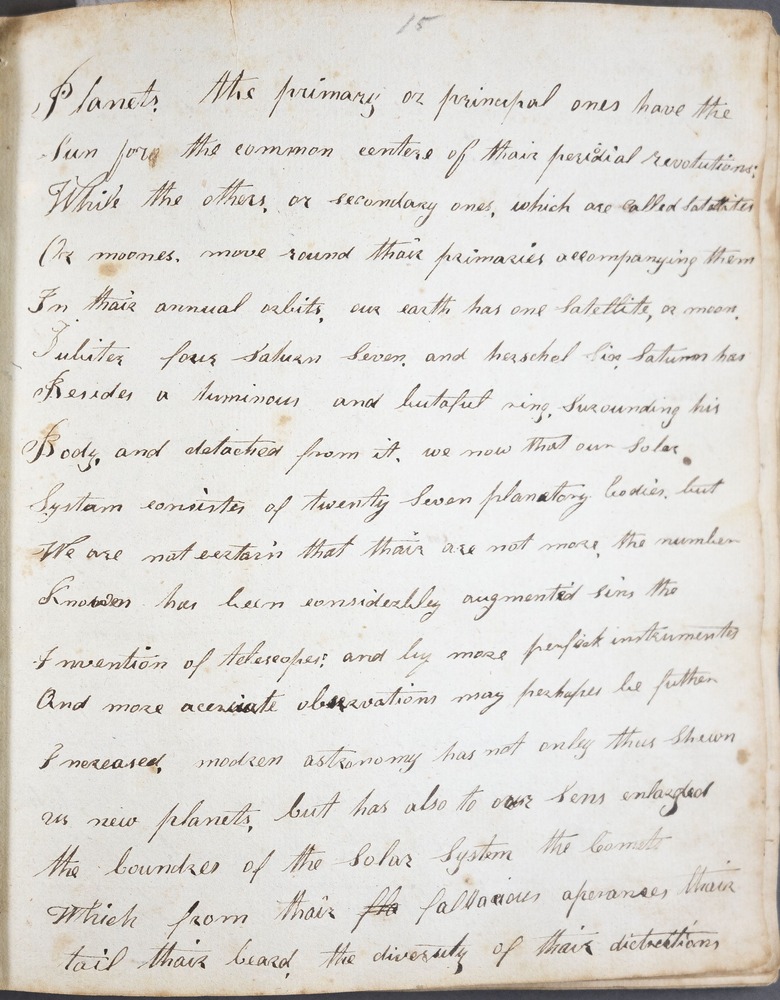 15
Planets. the primary or principal ones have the
Sun fore the common centere of thair peridial revolutions;
While the others, or secondary ones, which are called Satetlites
Or moones. move round thair primaries accompanying them
In thair annual orbits, our earth has one Satellite, or moon.
Jubiter four Saturn Seven, and herschel Six, Saturnn has
Besides a luminous and butaful ring, Surounding his
Body, and detactied from it. we now that our Solar
System consistes of twenty Seven planatory bodies. but
We are not certain that thair are not more, the number
Knowen has been considerbley augmentid sins the
Invention of telescopes; and by more perfeck instrumentes
And more accuiate observations may perhapes be futher
Increased, modren astronomy has not onley thus Shewn
us new planets, but has also to our Sens enlargded
the boundres of the Solar System the Comets
Which from thair fla fallacious aperances thair
tail thair beard, the diversity of thair dictrections